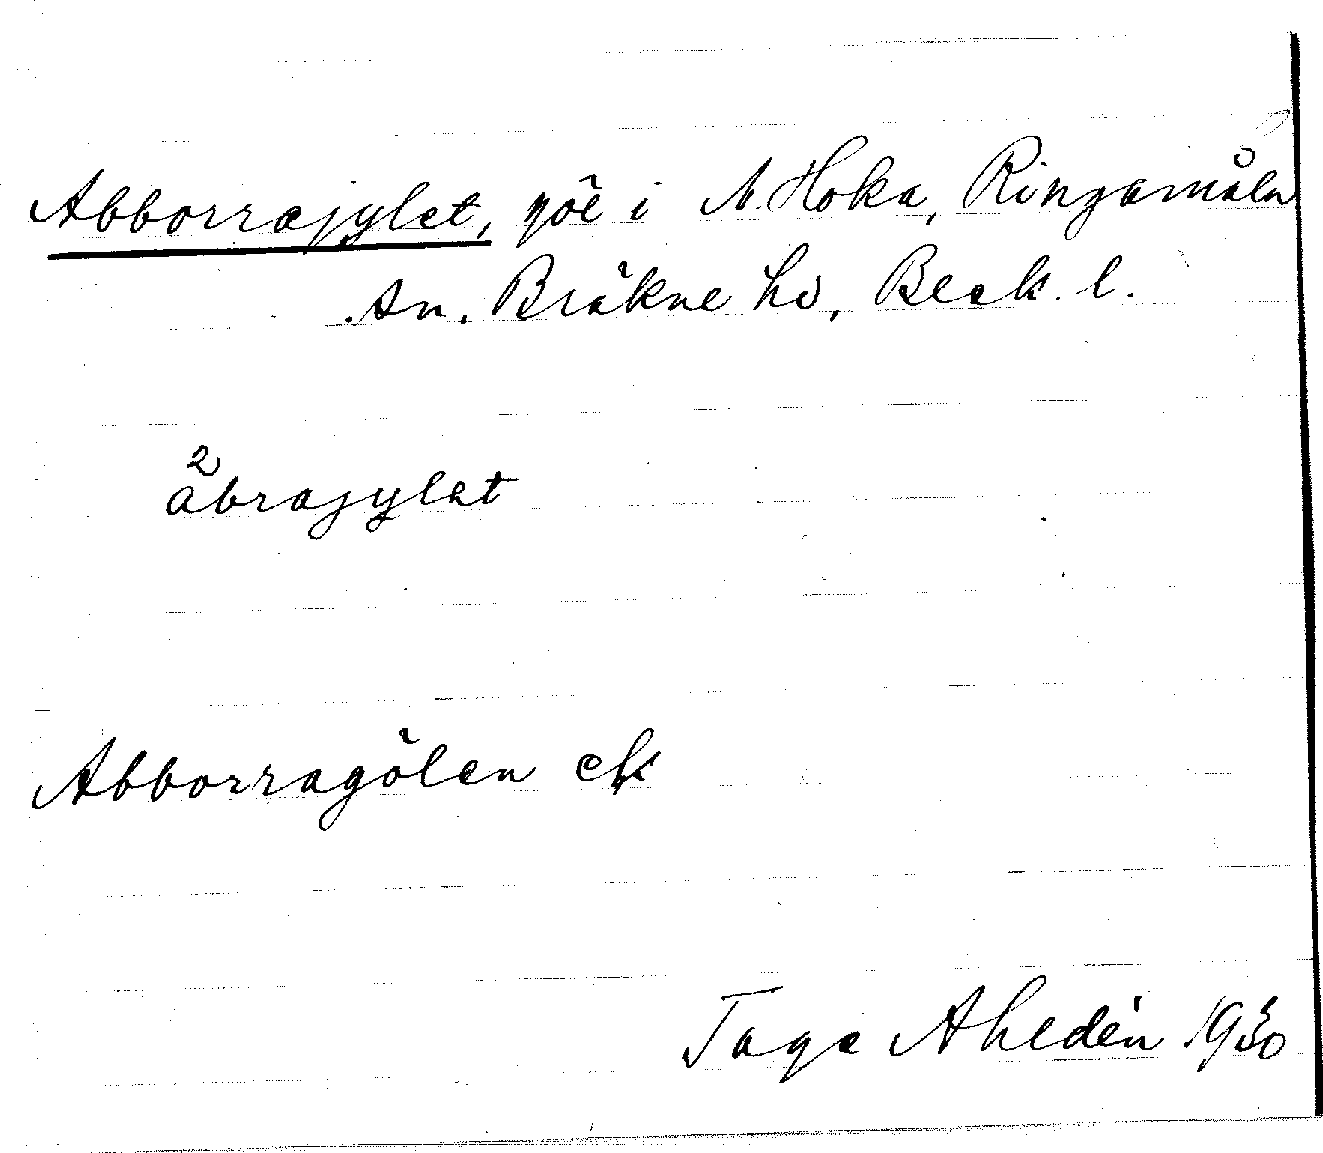 Abborrajylet, göl i N. Hoka, Ringamåla
sn. Bräkne hd, Blek. l.
åbrajylet
Abborragölen ek
Tage Ahldén 1930